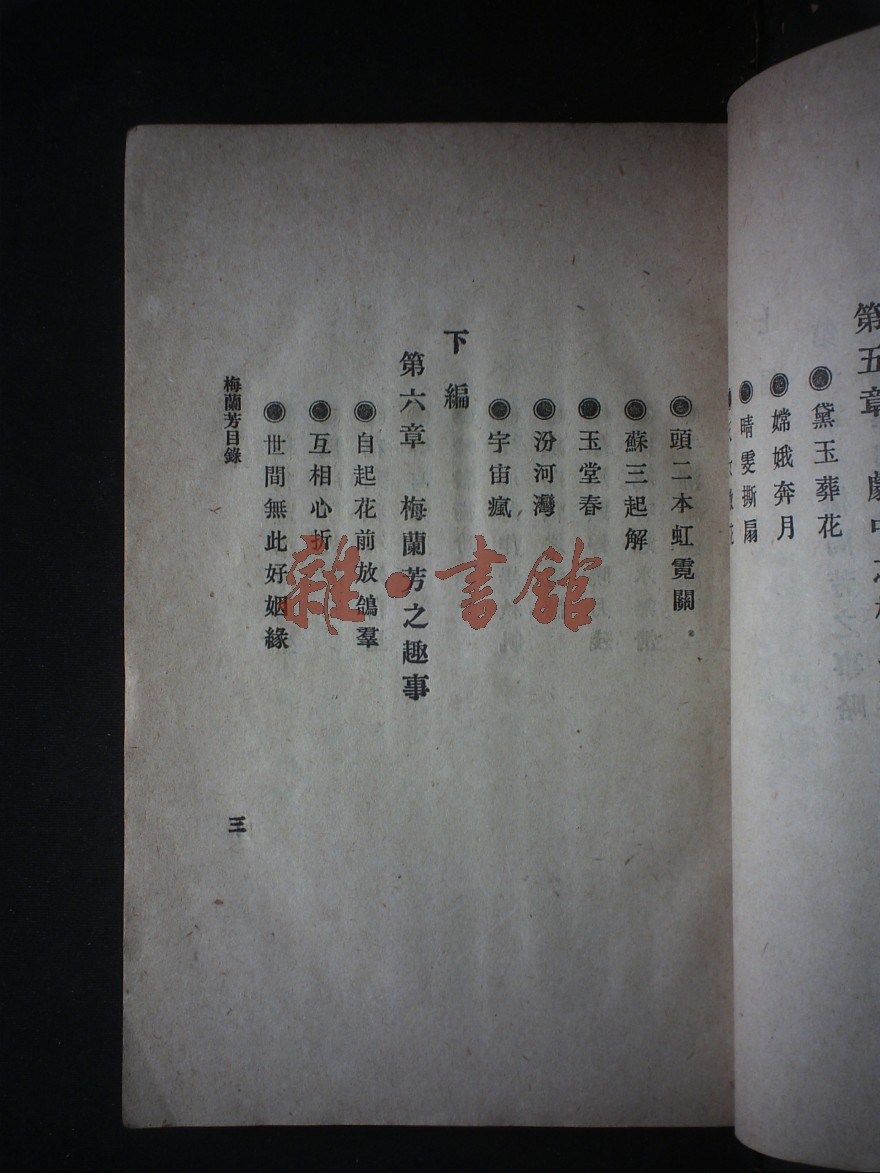 第五章
黛玉葬花
嫦娥奔月
晴雯撕扇
頭二本虹霓關
蘇三起解
玉堂春
汾河灣
宇宙瘋
下編
第六章　梅蘭芳之趣事
自起花前放鴿羣
互相心折
世間無此好姻緣
梅蘭芳目錄
三
雜·書館